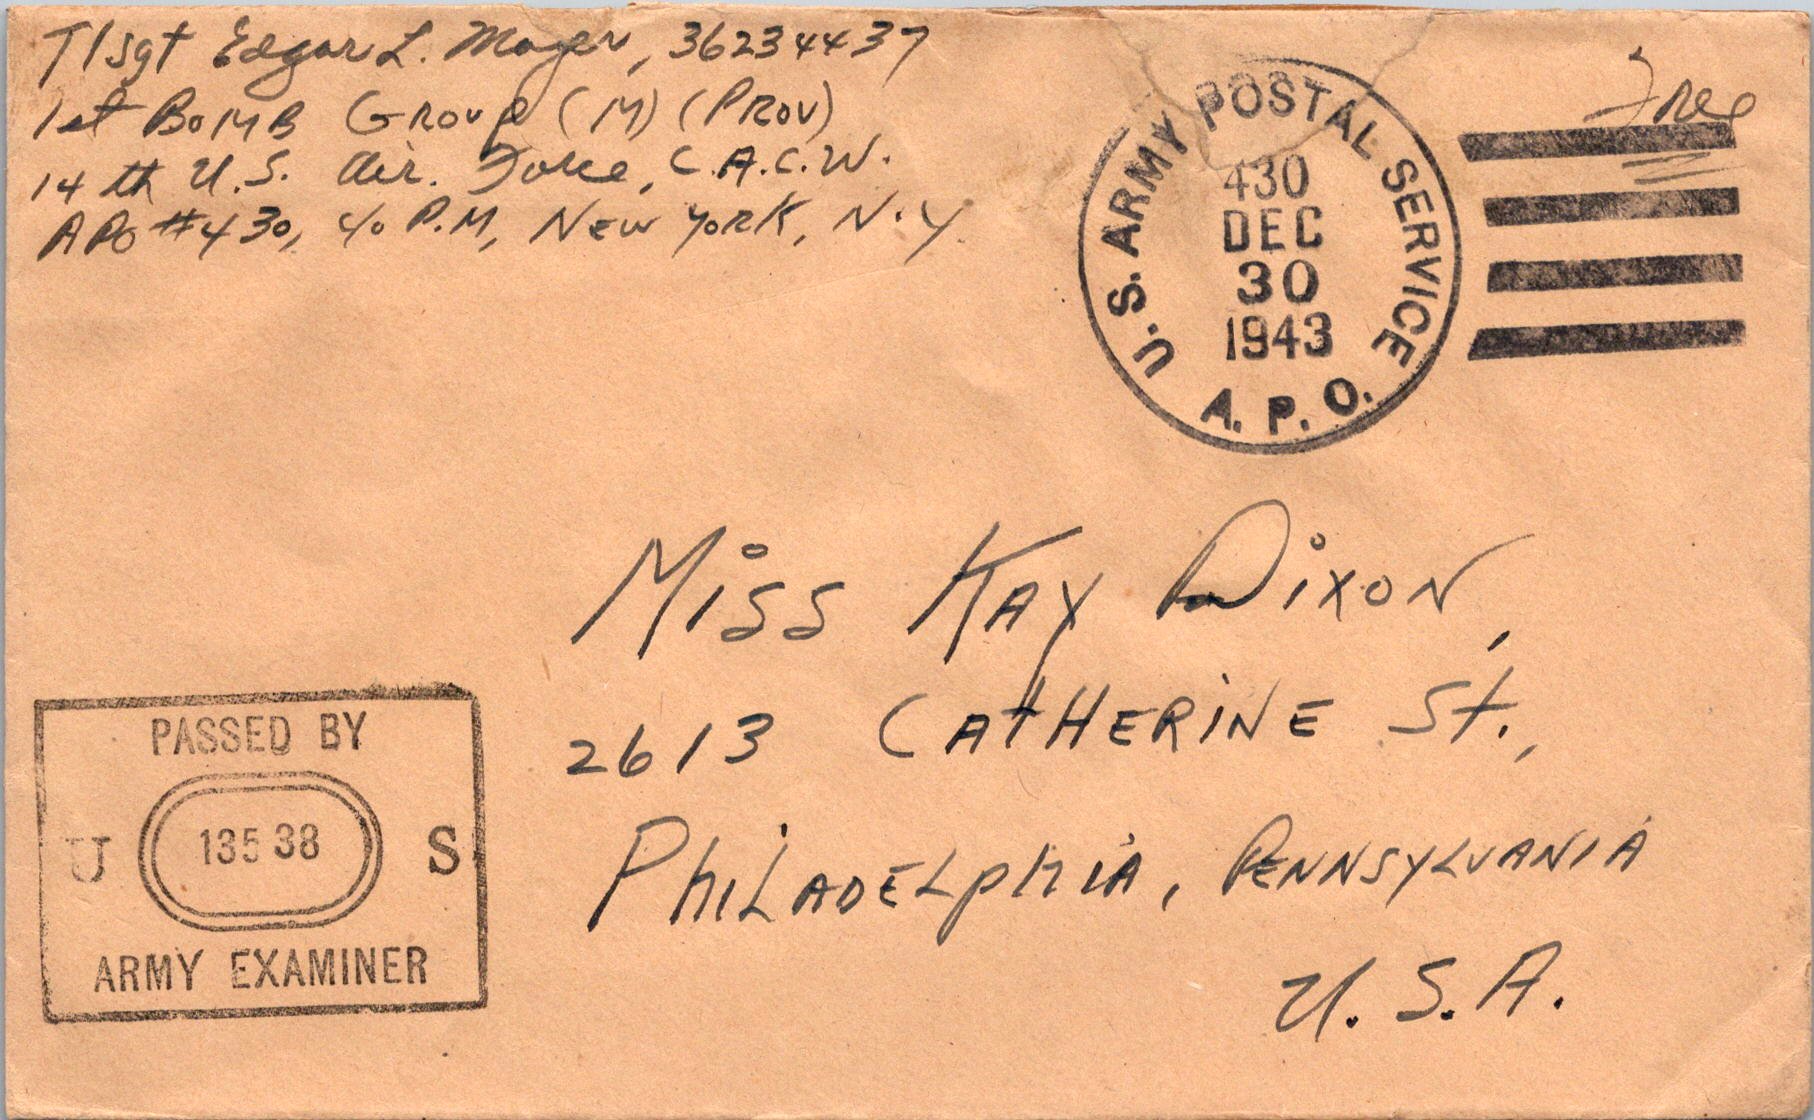 T/sgt Edgar L. Mayer, 36234437
1st BOMB GROUP (M) (PROV)
14th U.S. Air. Force, C.A.C.W.
APO #430, c/o P.M, NEW YORK, N.Y.
U.S. ARMY POSTAL SERVICE
430
DEC
30
1943
A.P.O.
Free
MISS KAY DIXON,
2613 CATHERINE St.,
PhiLADELphiA, PENNSYLVANIA
U.S.A.
PASSED BY
U 13538 S
ARMY EXAMINER